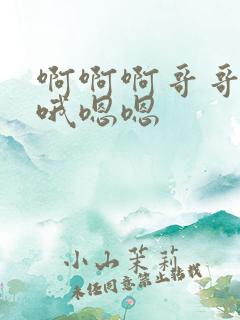 啊啊啊哥哥
哦嗯嗯
小山茉莉
未经同意禁止转载